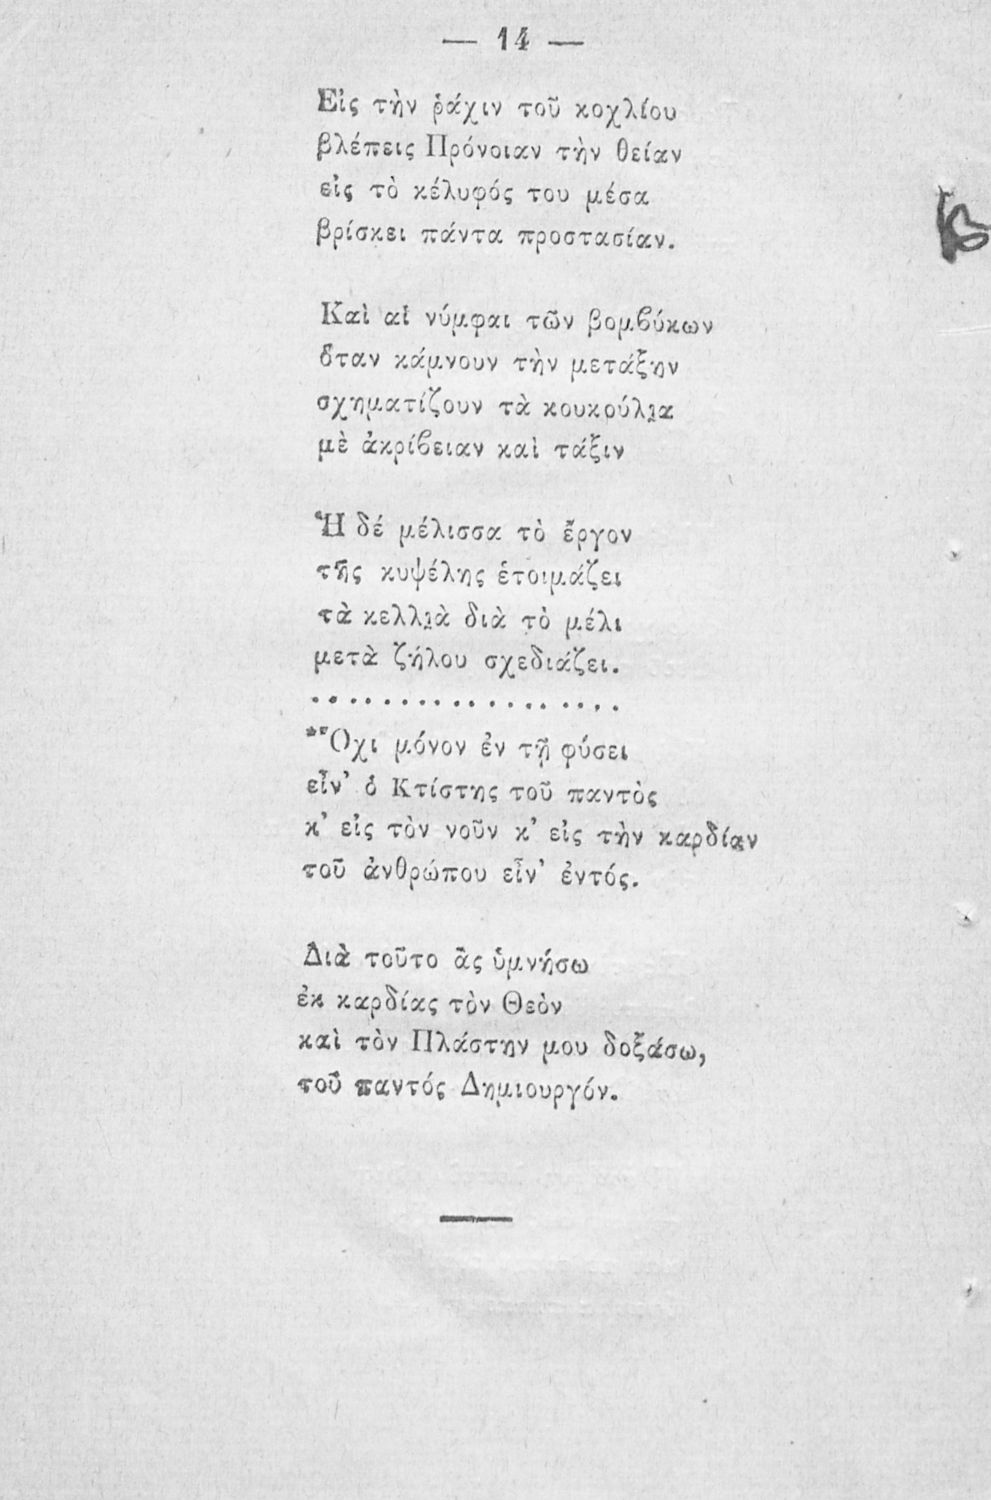 — 14 —
Εἰς τὴν ῥάχιν τοῦ κοχλίου
βλέπεις Πρόνοιαν τὴν θείαν
εἰς τὸ κέλυφός του μέσα
βρίσκει πάντα προστασίαν.
Καὶ αἱ νύμφαι τῶν βομϐύκων
ὅταν κάμνουν τὴν μετάξην
σχηματίζουν τὰ κουκούλια
μὲ ἀκρίϐειαν καὶ τάξιν
Ἡ δέ μέλισσα τὸ ἔργον
τῆς κυψέλης ἑτοιμάζει
τὰ κελλιὰ διὰ τὸ μέλι
μετὰ ζήλου σχεδιάζει.
. . . . . . . . . . . . . . . . . .
*Ὄχι μόνον ἐν τῇ φύσει
εἶν’ ὁ Κτίστης τοῦ παντὸς
κ’ εἰς τὸν νοῦν κ’ εἰς τὴν καρδίαν
τοῦ ἀνθρώπου εἶν’ ἐντός.
Διὰ τοῦτο ἂς ὑμνήσω
ἐκ καρδίας τὸν Θεὸν
καὶ τὸν Πλάστην μου δοξάσω,
τοῦ παντός Δημιουργόν.